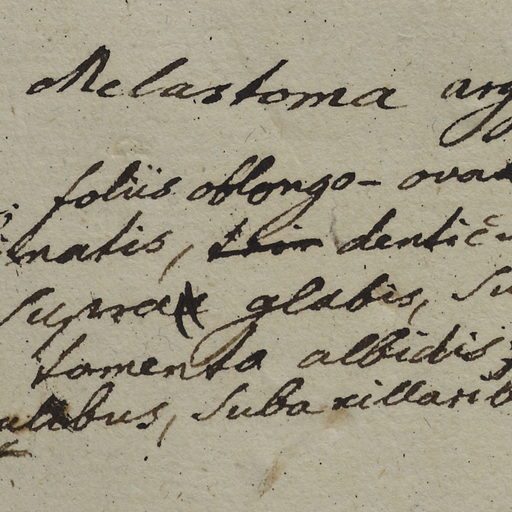 Melastoma arg
foliis oblongo-ova
natis, denticu
Supra glabis, Su
tomento albidis,
alibus, Subaxillarib